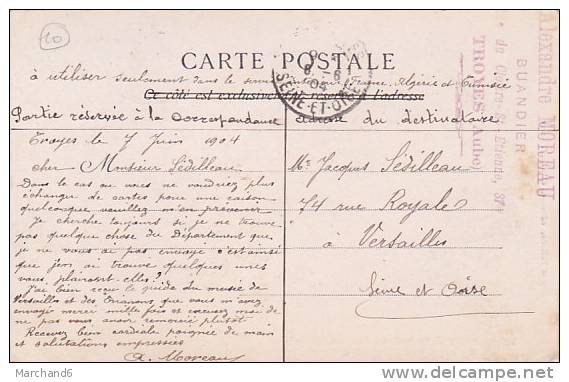 10
CARTE POSTALE
à utiliser seulement dans le service intérieur, France, Algérie et Tunisie
Ce côté est exclusivement réservé à l'adresse
Partie réservée à la Correspondance
adresse du destinataire
SEINE-ET-OISE
8 - 6
04
Troyes le 7 Juin 1904
cher Monsieur Sédilleau
Dans le cas ou vous ne voudriez plus
échanger de cartes pour une raison
quelconque veuillez m'en prévenir
Je cherche toujours si je ne trouve
pas quelque chose du Département que
je ne vous ai pas envoyé c'est ainsi
que j'en ai trouvé quelques unes
vous plairont elles?
J'ai bien reçu le guide du musée de
Versailles et des Trianons que vous m'avez
envoyé merci mille fois et excusez moi de
ne pas vous avoir remercié plutôt
Recevez bien cordiale poignée de main
et salutations empressées
A. Moreau
Mr Jacques Sédilleau
74 rue Royale
à Versailles
Seine et Oise
Alexandre MOREAU
BUANDIER
TROYES (Aube)
Marchand6
http://www.delcampe.net